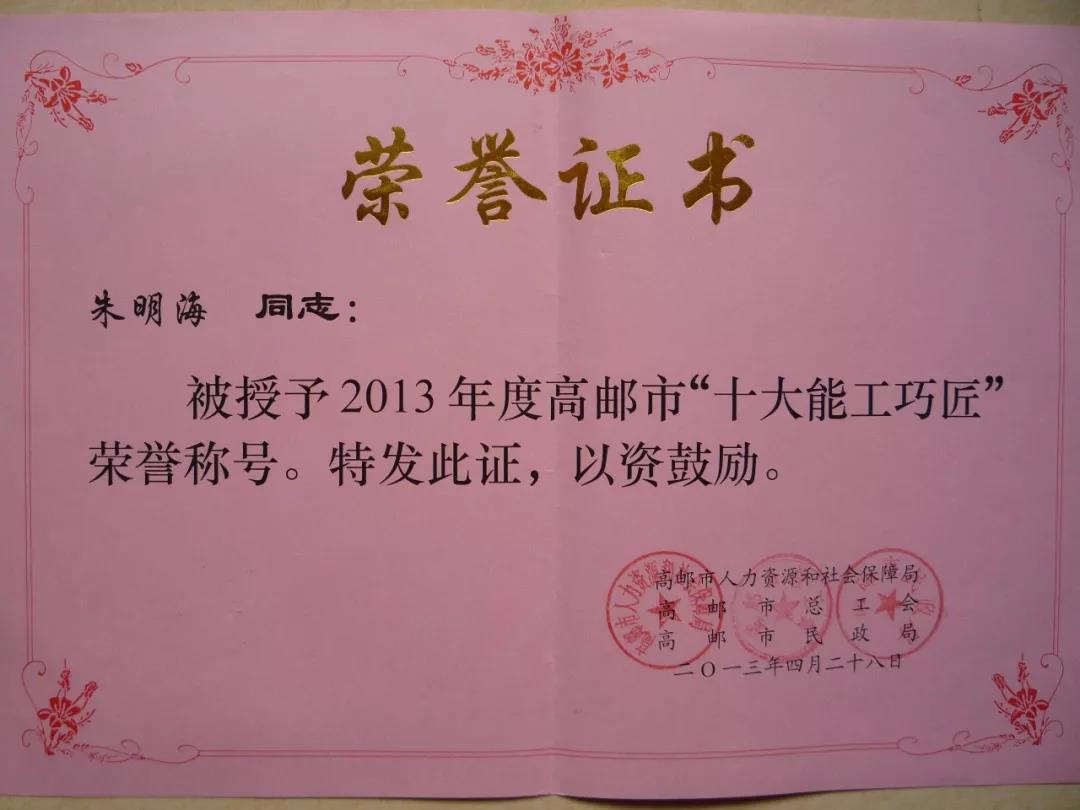 荣誉证书
朱明海 同志：
被授予2013年度高邮市“十大能工巧匠”
荣誉称号。特发此证，以资鼓励。
高邮市人力资源和社会保障局
高邮市总工会
高邮市民政局
二〇一三年四月二十八日